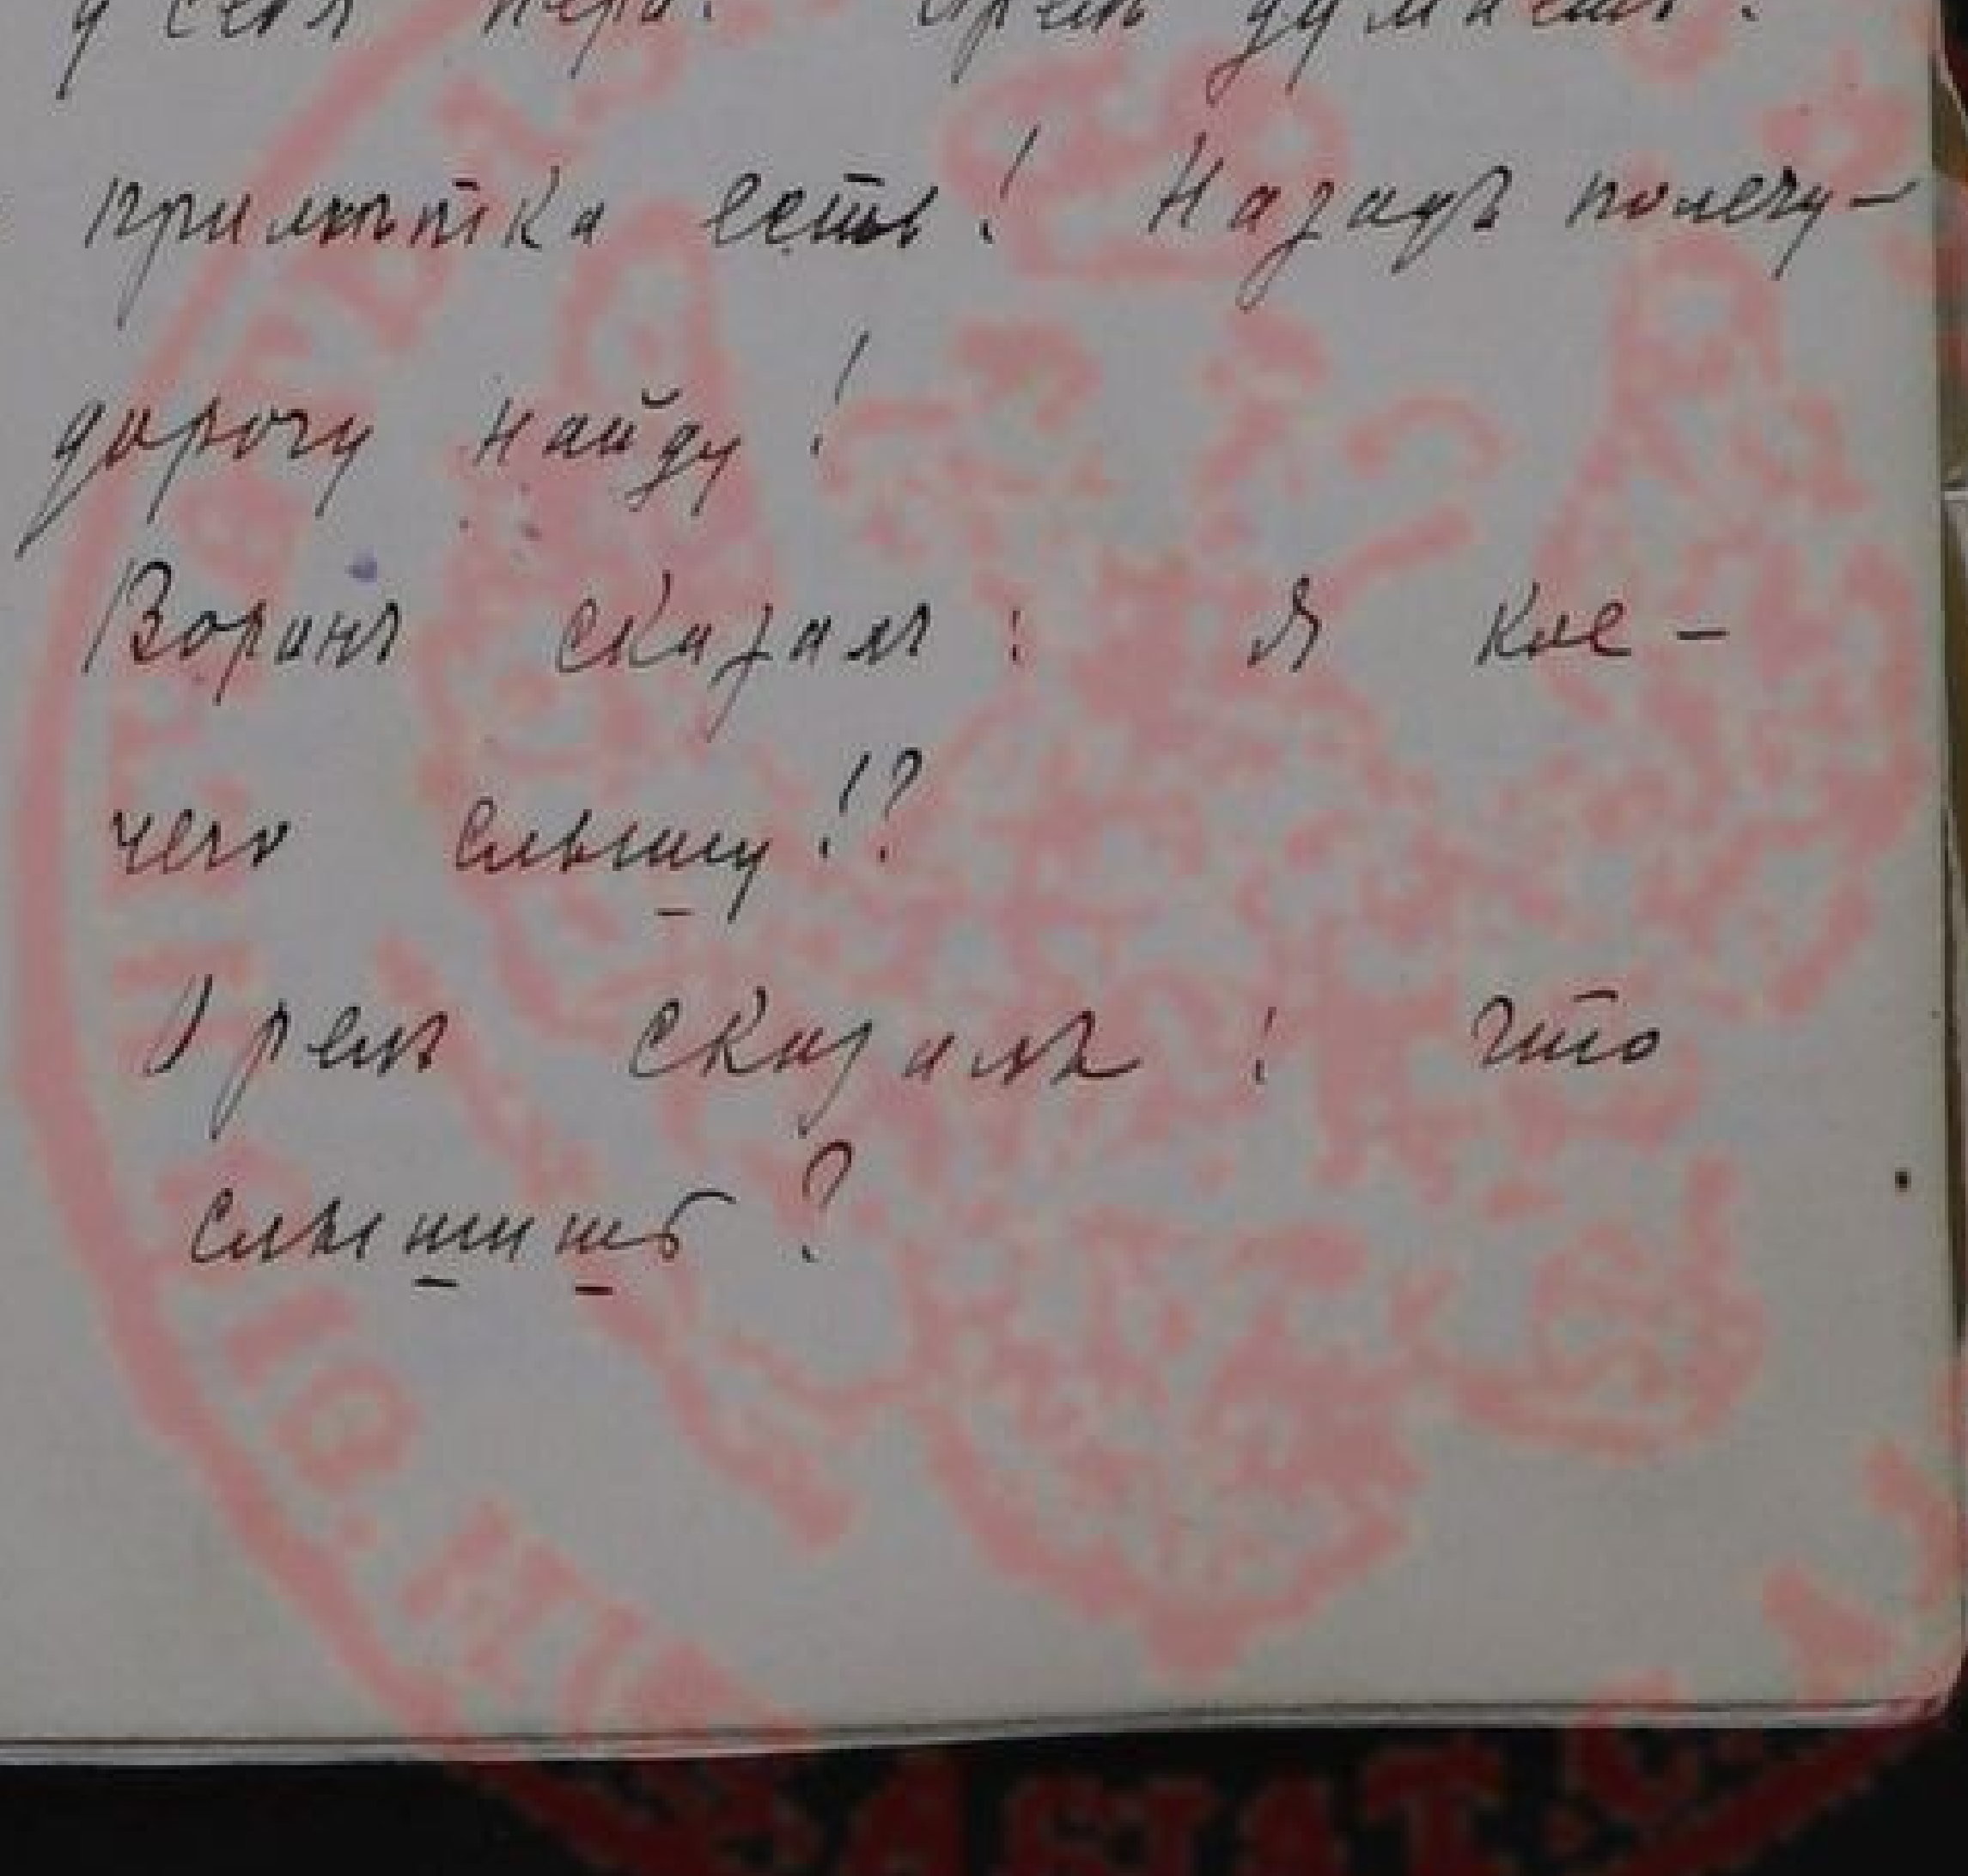 у себя пера. Орелъ думаетъ:
примѣтка есть! Назадъ полечу-
дорогу найду!
Воронъ сказалъ: Я кое-
чего слышу!?
Орелъ сказалъ: Что
слышишь?
ASIAT